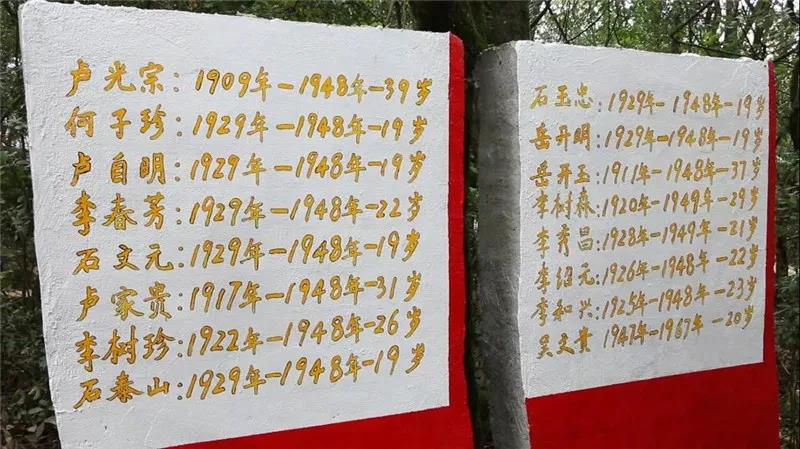 卢光宗：1909年—1948年—39岁
何子珍：1929年—1948年—19岁
卢自明：1929年—1948年—19岁
李春芳：1929年—1948年—22岁
石文元：1929年—1948年—19岁
卢家贵：1917年—1948年—31岁
李树珍：1922年—1948年—26岁
石泰山：1929年—1948年—19岁
石玉忠：1929年—1948年—19岁
岳开明：1929年—1948年—19岁
岳开玉：1911年—1948年—37岁
李树森：1920年—1949年—29岁
李秀昌：1928年—1949年—21岁
李绍元：1926年—1948年—22岁
李和兴：1925年—1948年—23岁
吴文贵 1947年—1967年—20岁